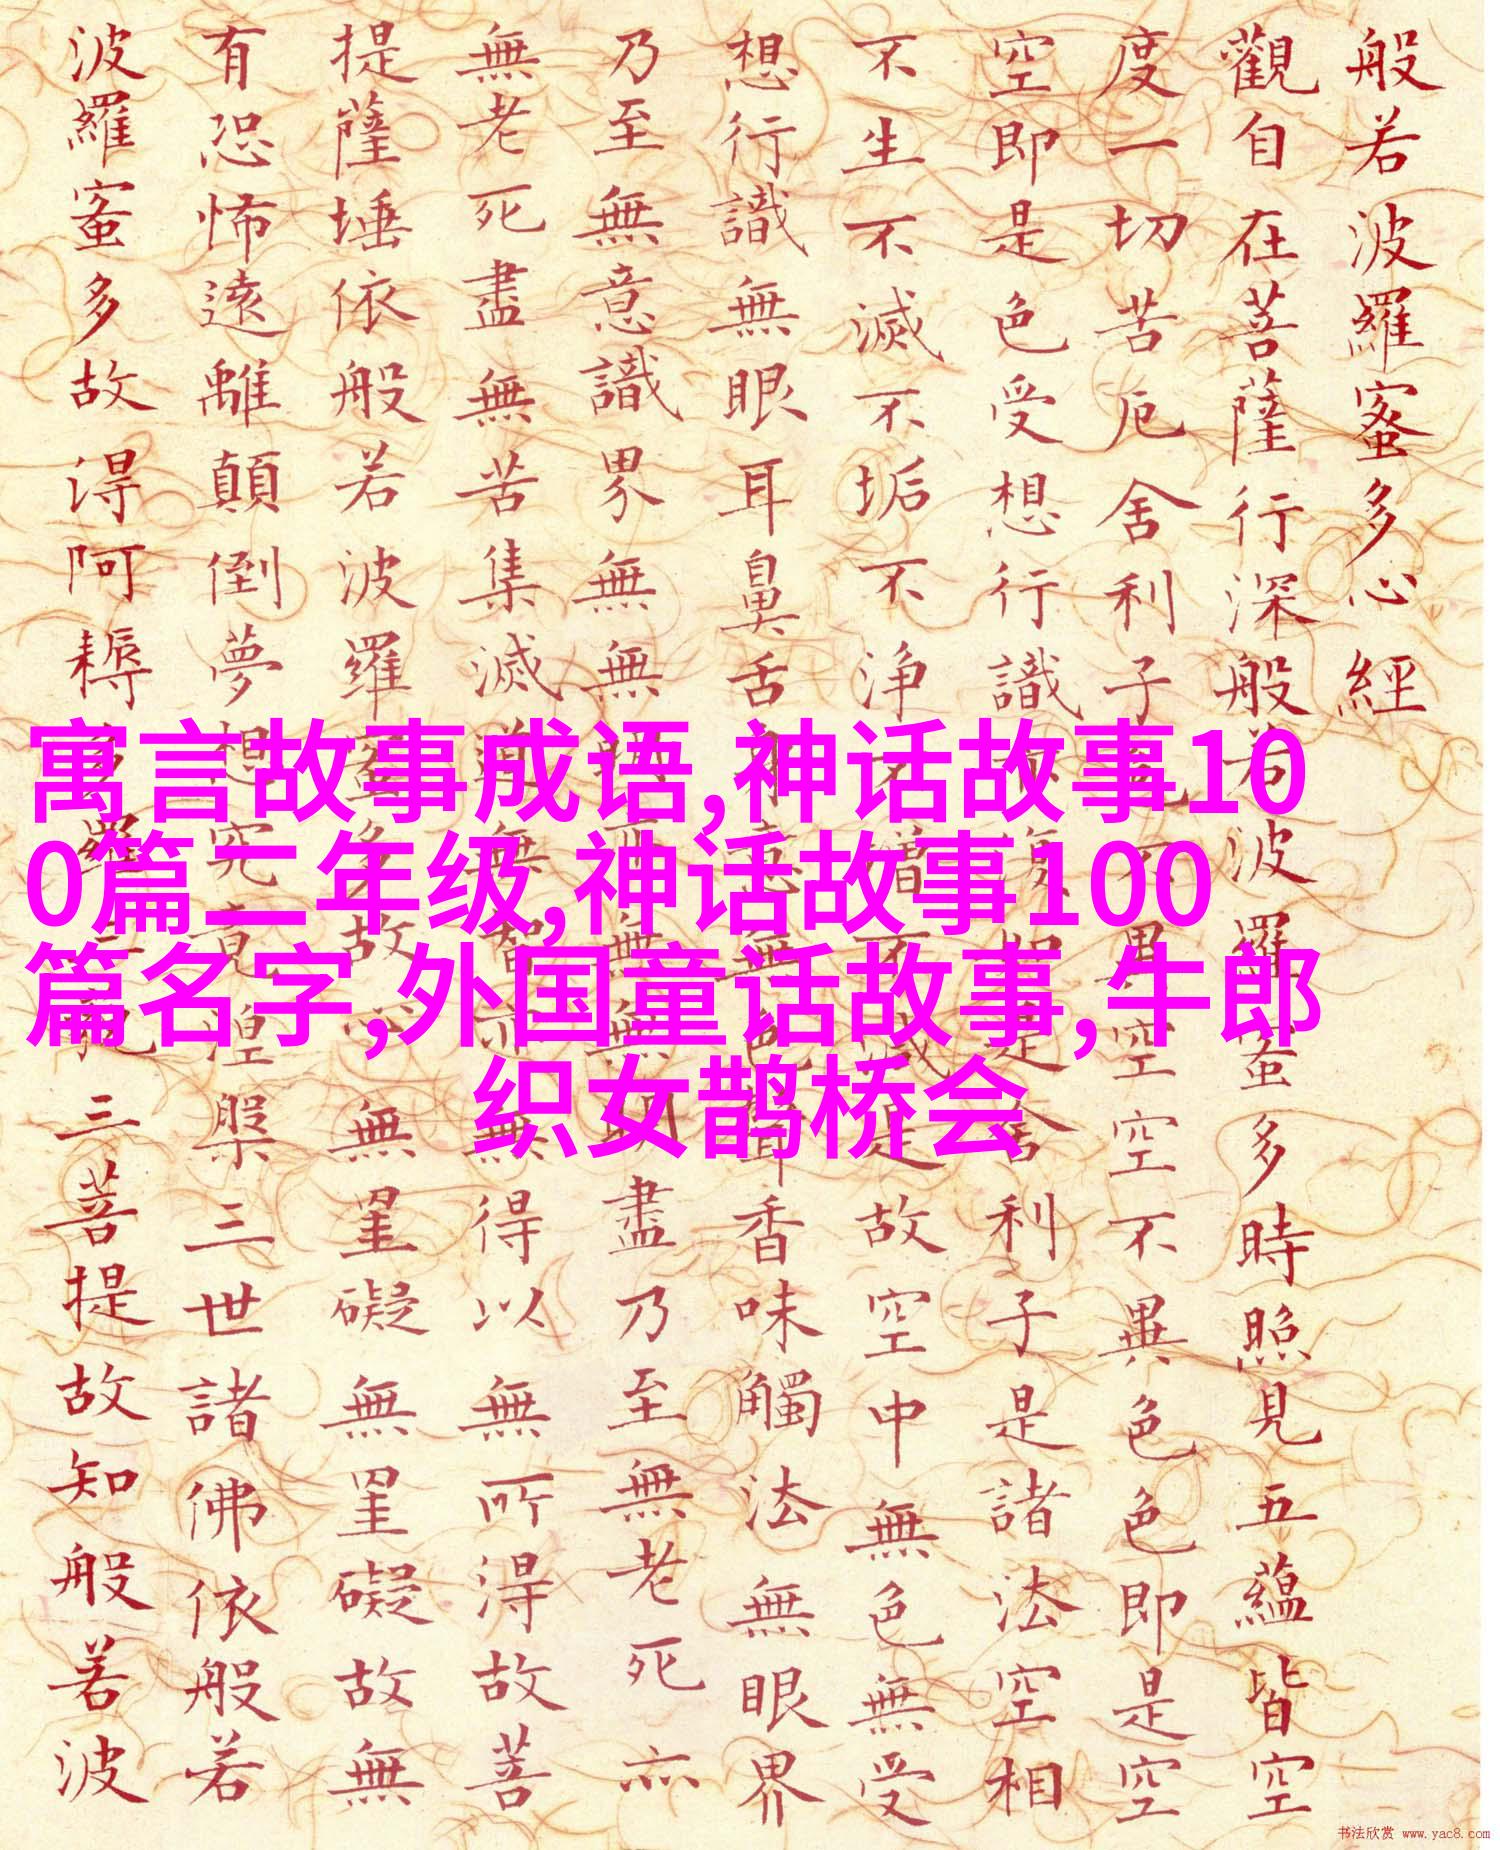 般若波羅蜜多心經
觀自在菩薩行深般若波羅蜜多時照見五蘊皆空
度一切苦厄舍利子色不異空空不異色色即是空
空即是色受想行識亦復如是舍利子是諸法空相
不生不滅不垢不净不增不減是故空中無色無受
想行識無眼耳鼻舌身意無色聲香味觸法無眼界
乃至無意識界無無明亦無無明盡乃至無老死亦
無老死盡無苦集滅道無智亦無得以無所得故菩
提薩埵依般若波羅蜜多故心無罣礙無罣礙故無
有恐怖遠離顛倒夢想究竟涅槃三世諸佛依般若
波羅蜜多故得阿耨多羅三藐三菩提故知般若波
寓言故事成语,神话故事10
0篇二年级,神话故事100
篇名字,外国童话故事,牛郎
织女鹊桥会
书法欣赏 www.yac8.com